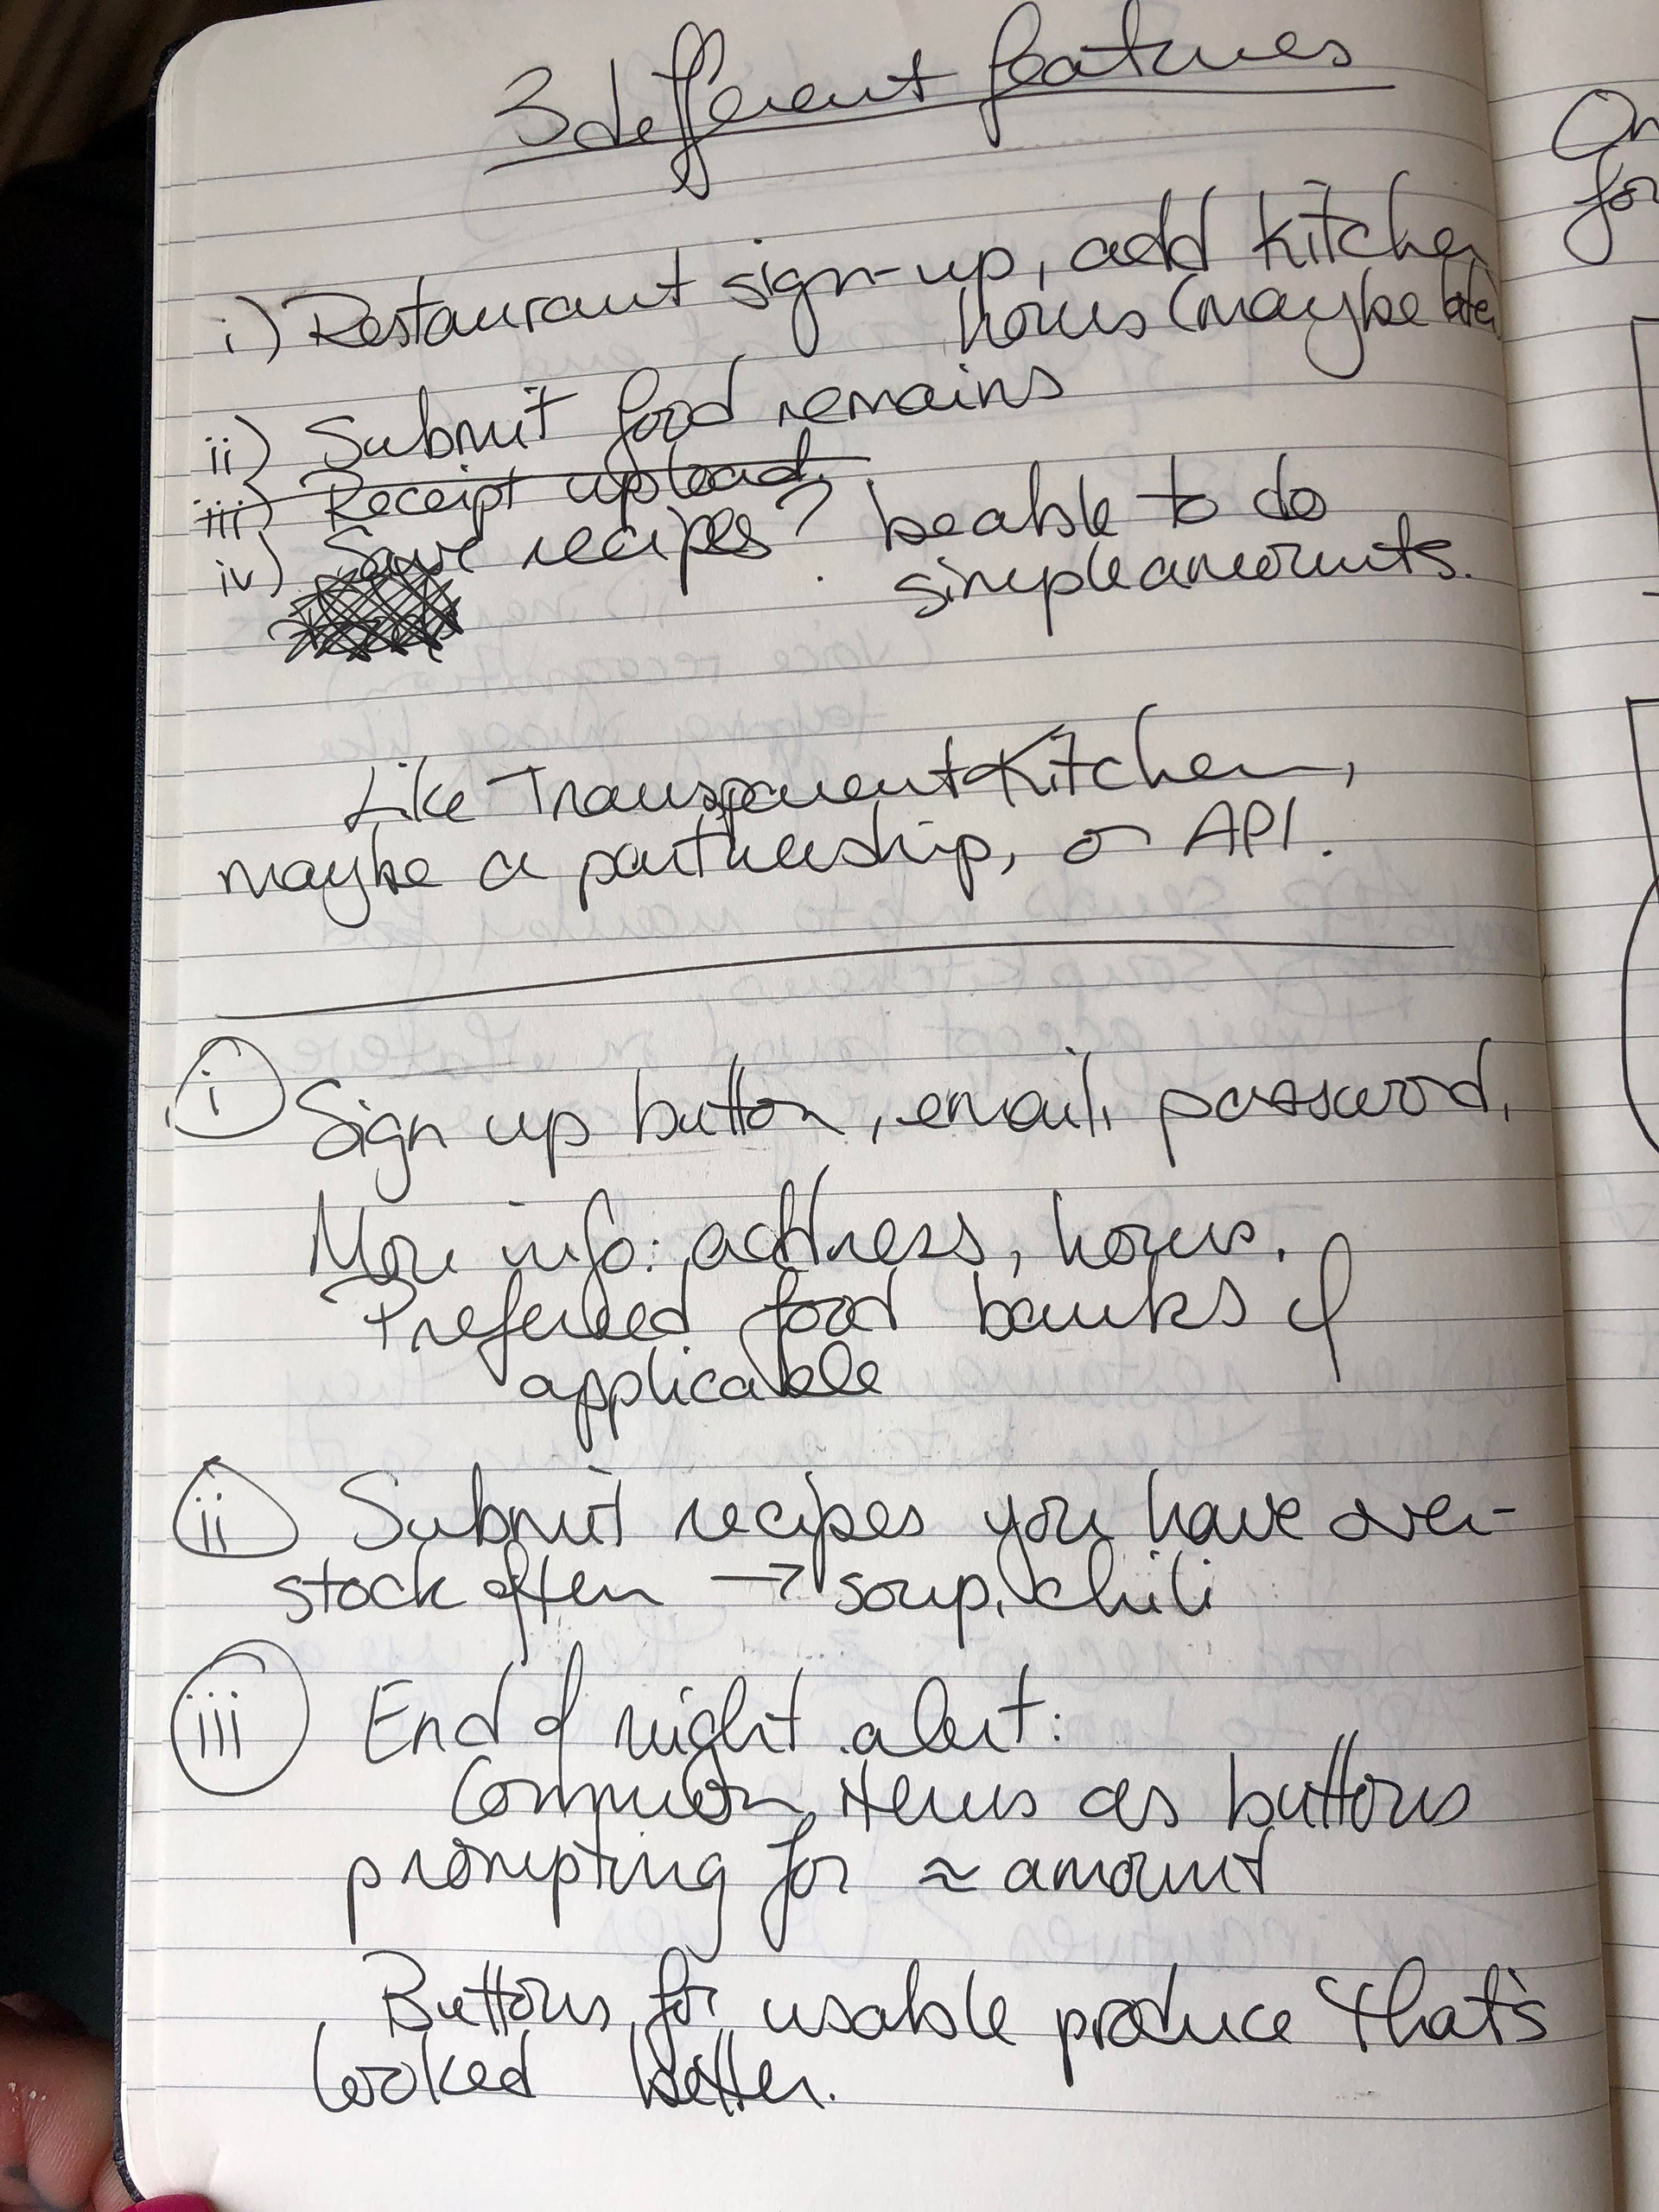 3 different features
i) Restaurant sign-up, add kitchen
hours (maybe later)
ii) Submit food remains
iii) Receipt upload
iv) Save recipes? be able to do
simple amounts.
Like Transparent Kitchen,
maybe a partnership, or API.
i Sign up button, email, password,
More info: address, hours.
Preferred food banks if
applicable
ii Submit recipes you have over-
stock often → soup, chili
iii End of night alert:
Common items as buttons
prompting for ≈ amount
Buttons for usable produce that's
looked better.
On
for